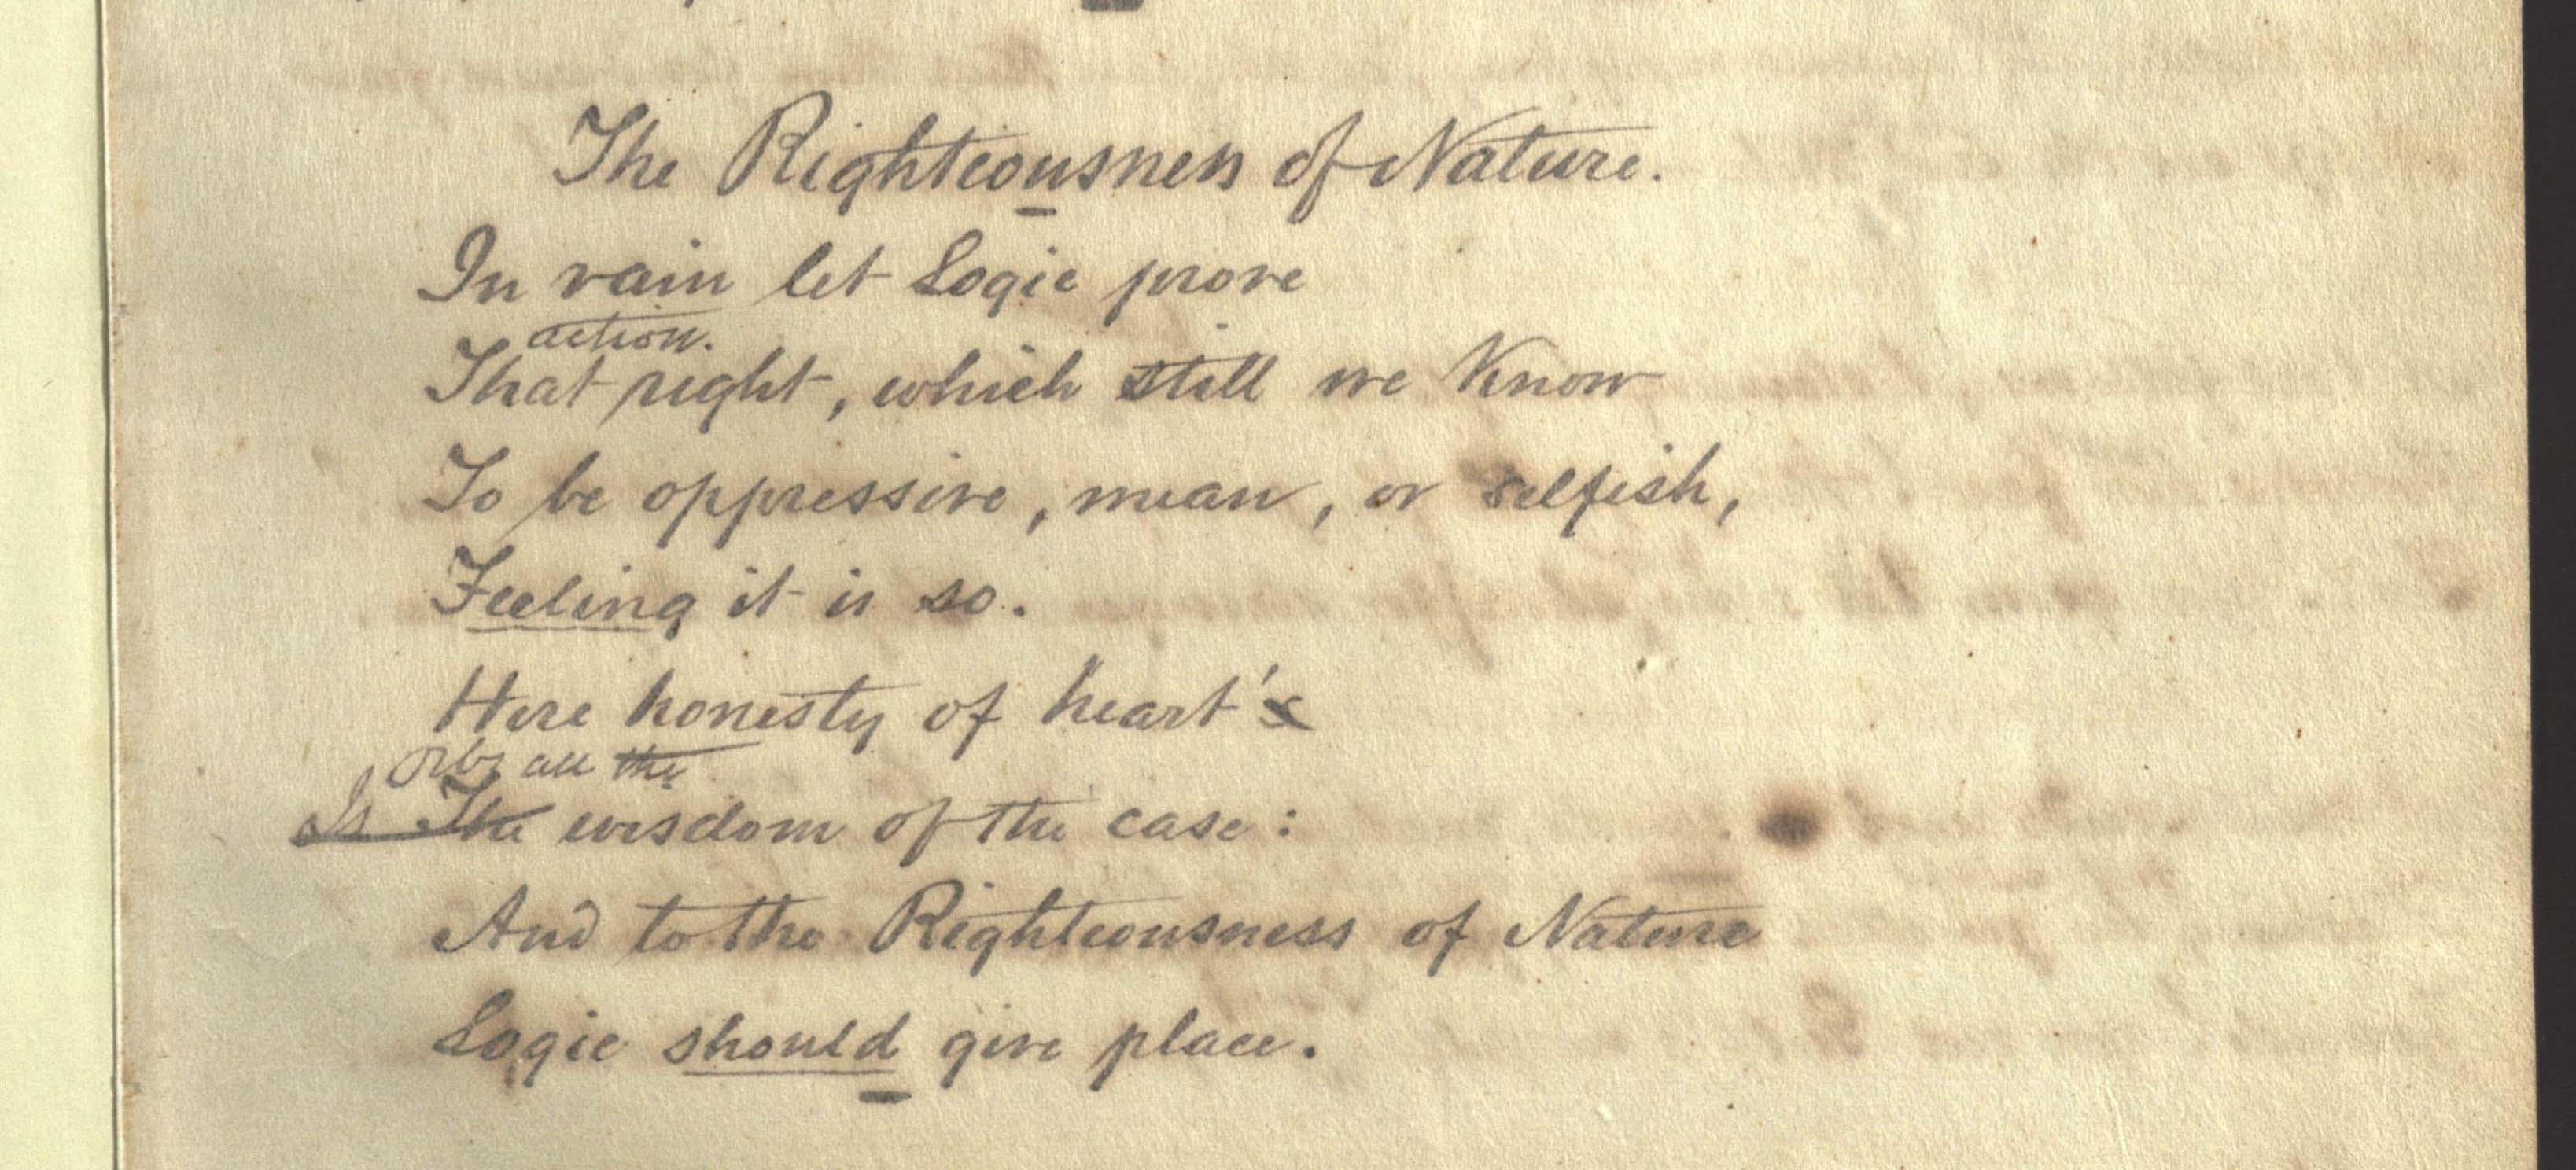 The Righteousness of Nature.
In vain let Logic prove
action.
That right, which still we Know
To be oppressive, mean, or selfish,
Feeling it is so.
Here honesty of heart's
all the
Is The wisdom of the case:
And to the Righteousness of Nature
Logic should give place.